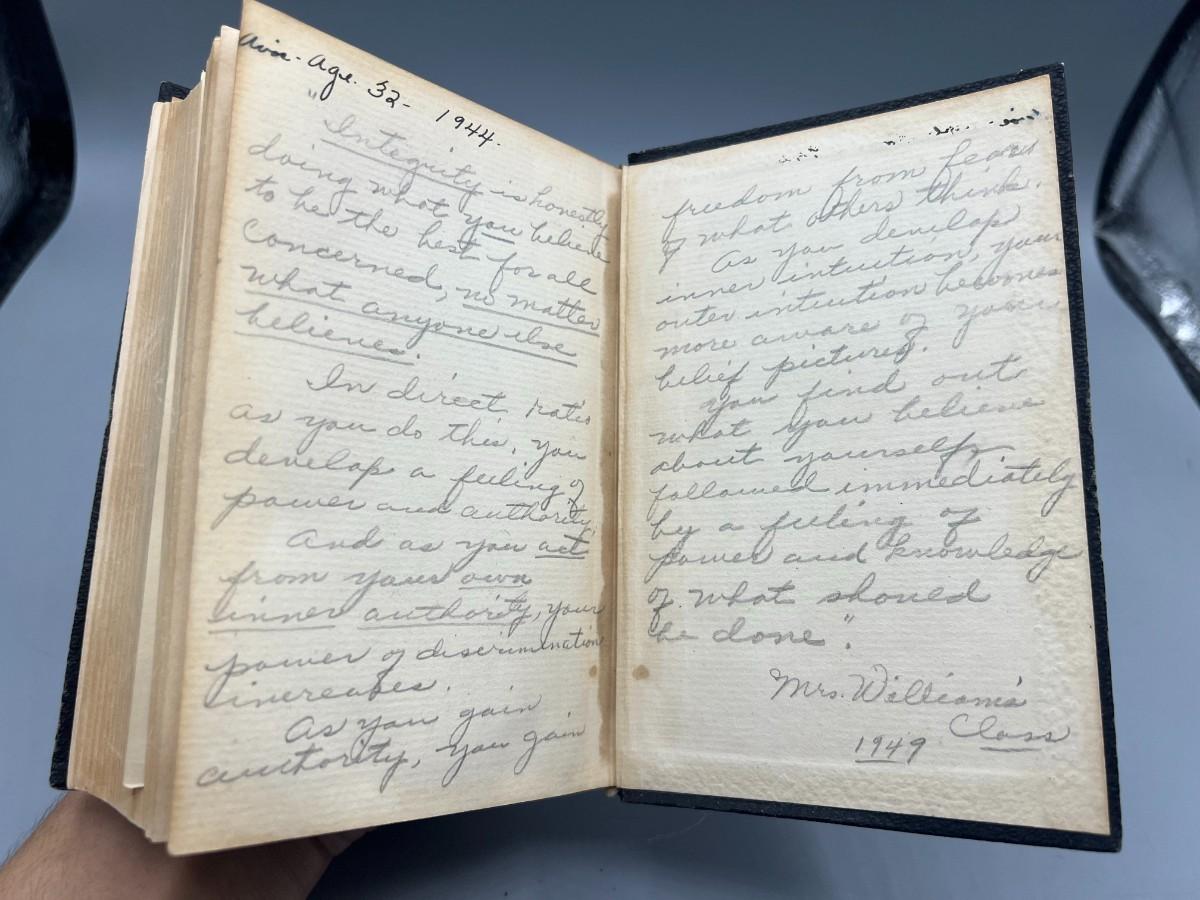 Age. 32- 1944.
"Integrity is honestly
doing what you believe
to be the best for all
concerned, no matter
what anyone else
believes.
In direct ratio
as you do this, you
develop a feeling of
power and authority.
And as you act
from your own
inner authority, your
power of discrimination
increases.
As you gain
authority, you gain
freedom from fear
of what others think.
As you develop
inner intuition, your
outer intuition becomes
more aware of your
belief pictures.
You find out
what you believe
about yourself,
followed immediately
by a feeling of
power and knowledge
of what should
be done".
Mrs. Williams
Class
1949